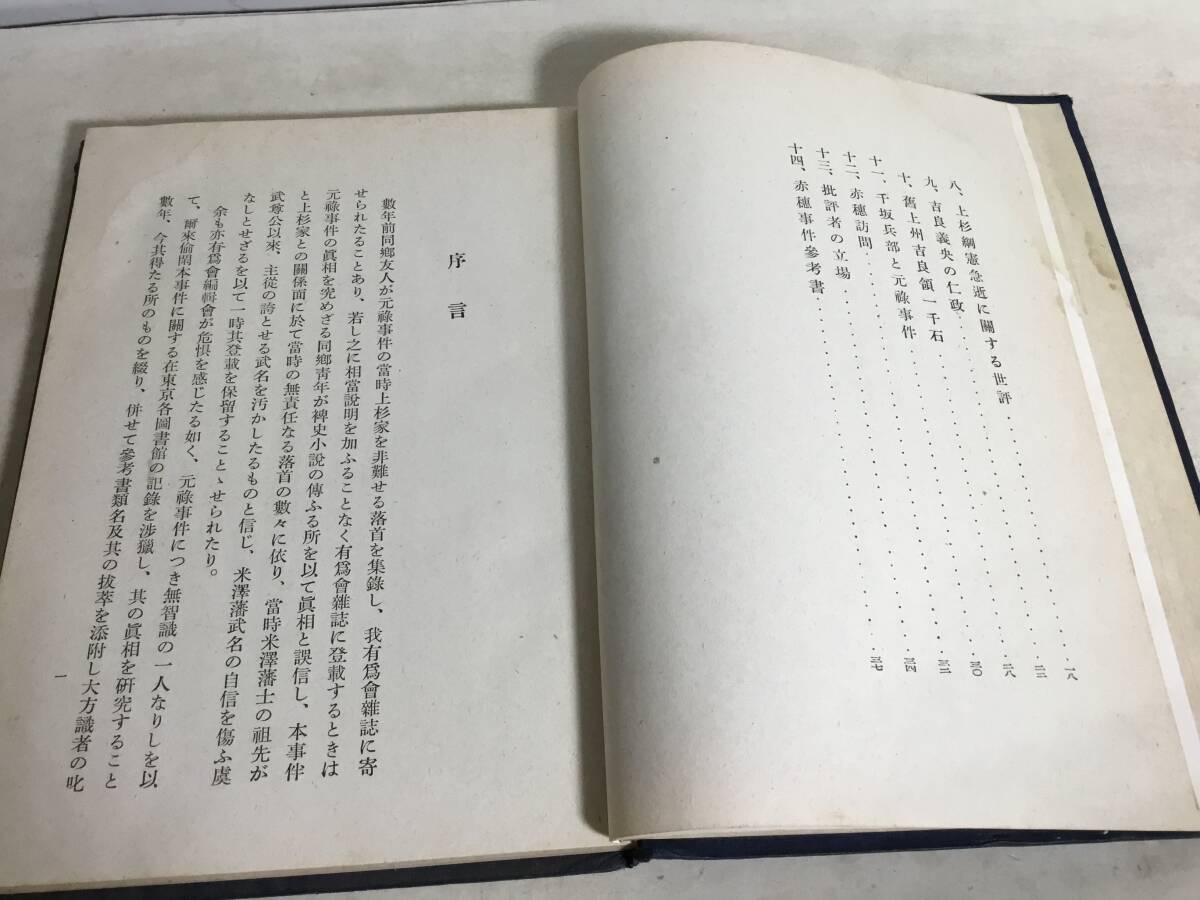 八、上杉綱憲急逝に關する世評・・・・・・・・・・・・・・・一八
九、吉良義央の仁政・・・・・・・・・・・・・・・二二
十、舊上州吉良領一千石・・・・・・・・・・・・・・・二八
十一、千坂兵部と元祿事件・・・・・・・・・・・・・・・三〇
十二、赤穂訪問・・・・・・・・・・・・・・・三二
十三、批評者の立場・・・・・・・・・・・・・・・三四
十四、赤穂事件參考書・・・・・・・・・・・・・・・三七
序言
數年前同鄕友人が元祿事件の當時上杉家を非難せる落首を集錄し、我有爲會雜誌に寄
せられたることあり、若し之に相當說明を加ふることなく有爲會雜誌に登載するときは
元祿事件の眞相を究めざる同鄕靑年が稗史小說の傳ふる所を以て眞相と誤信し、本事件
と上杉家との關係面に於て當時の無責任なる落首の數々に依り、當時米澤藩士の祖先が
武尊公以來、主從の誇とせる武名を汚かしたるものと信じ、米澤藩武名の自信を傷ふ虞
なしとせざるを以て一時其登載を保留することゝせられたり。
余も亦有爲會編輯會が危惧を感じたる如く、元祿事件につき無智識の一人なりしを以
て、爾來偷閑本事件に關する在東京各圖書館の記錄を涉獵し、其の眞相を硏究すること
數年、今其得たる所のものを綴り、併せて參考書類名及其の拔萃を添附し大方識者の叱
一